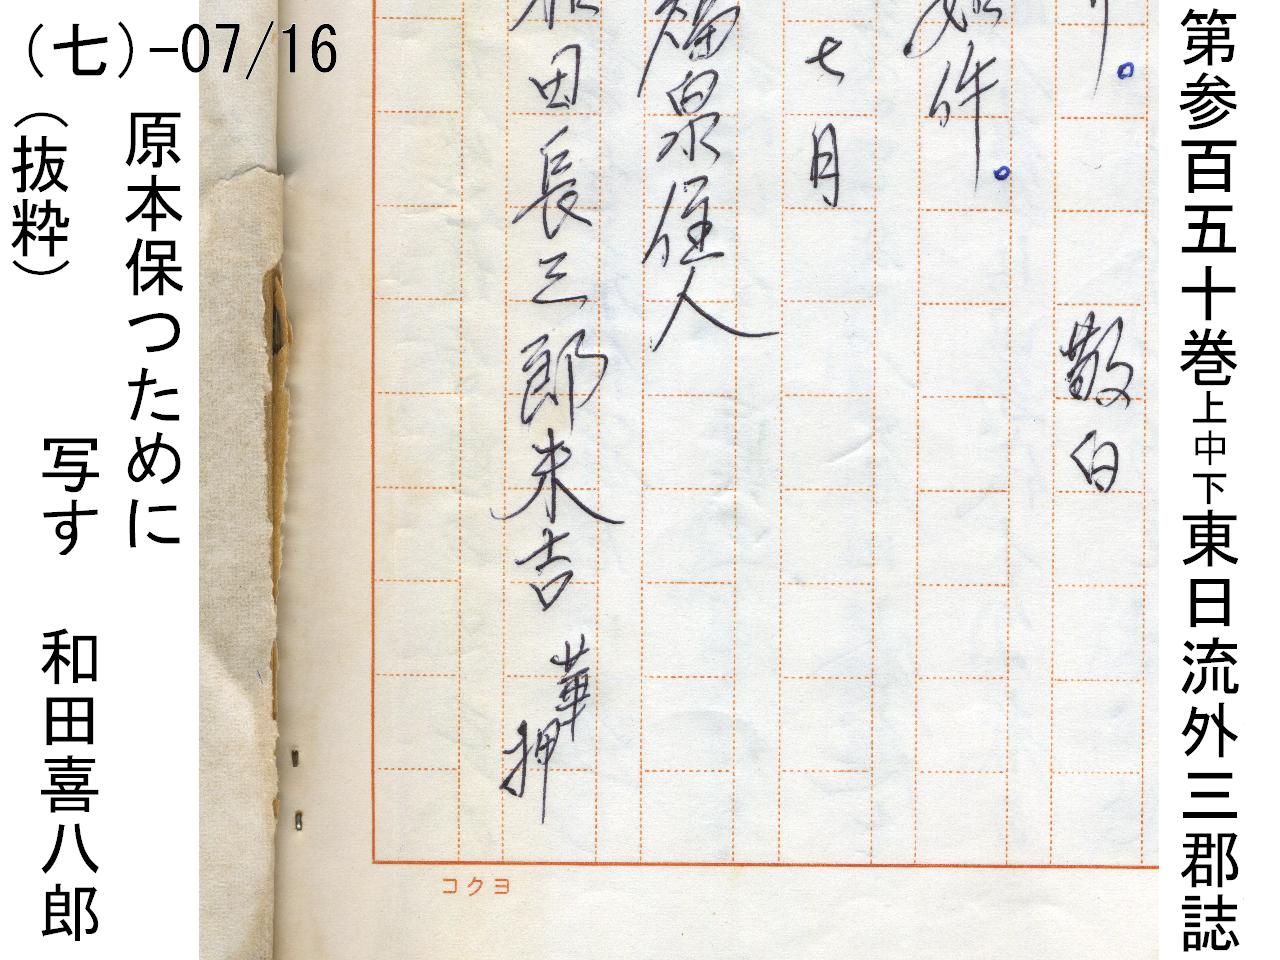 第参百五十巻上中下東日流外三郡誌
り。
敬白
如件。
七月
福泉住人
和田長三郎末吉
華押
コクヨ
(七)-07/16
原本保つために
写す 和田喜八郎
(抜粋)